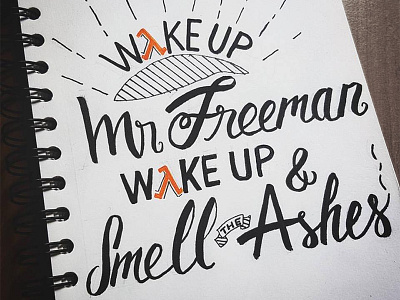 WλKE UP
Mr Freeman
WλKE UP &
Smell THE Ashes